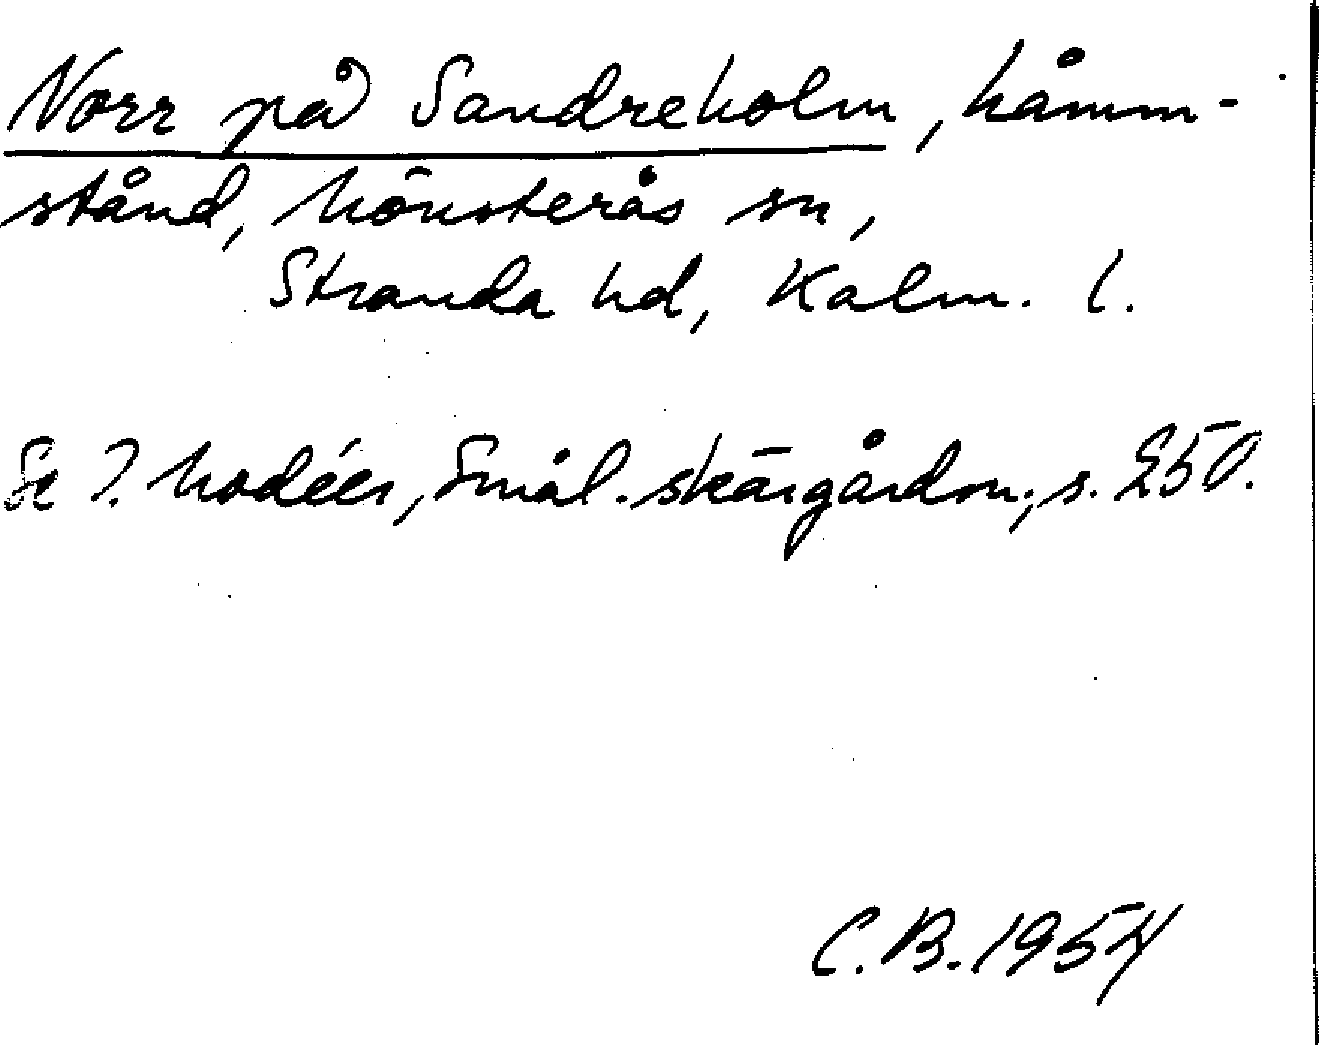 Norr på Sandreholm, håmm-
stånd, Mönsterås sn,
Stranda hd, Kalm. l.
Se J. Modéer, Smål. skärgårdsn., s. 250.
C. B. 1954